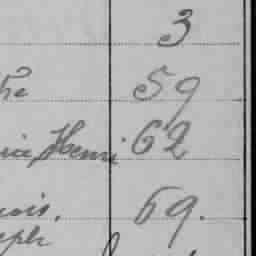 3
he 59
rice Henri 62
ois. 69.
eph